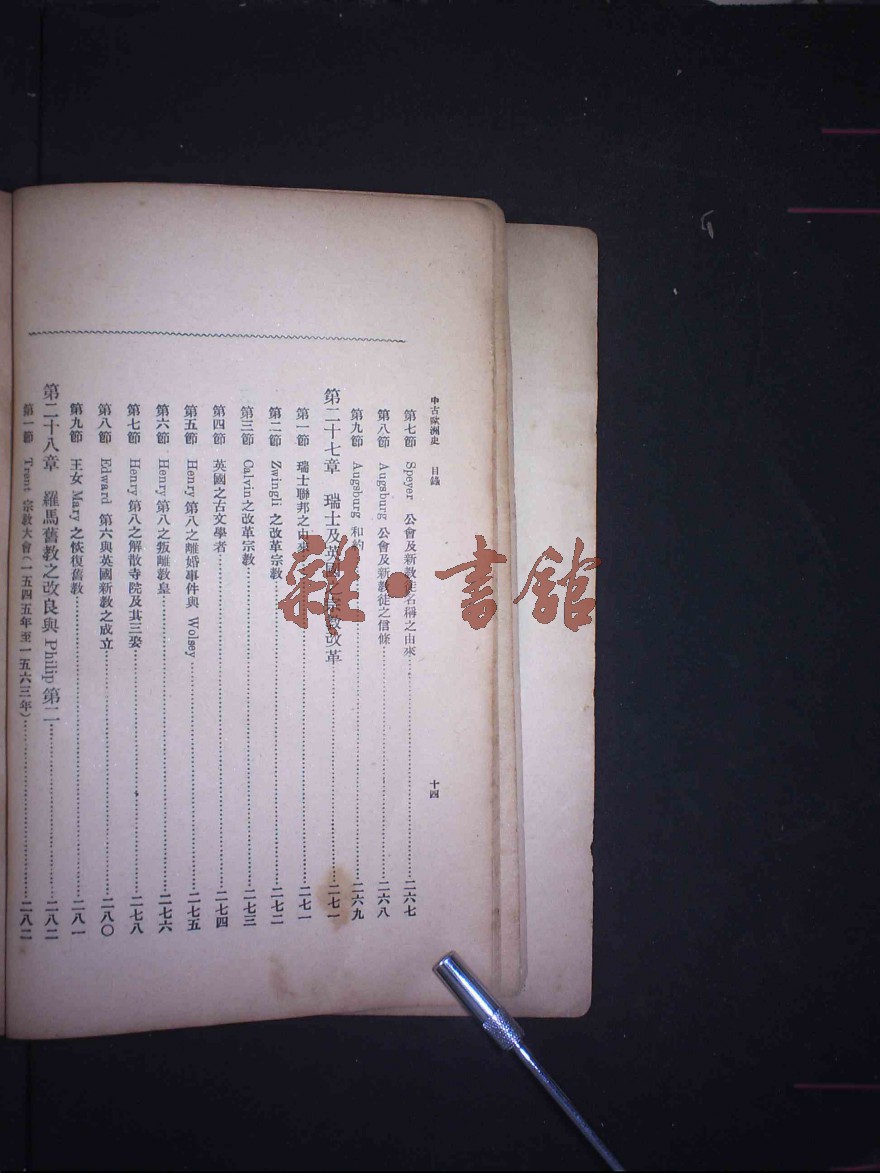 中古歐洲史 目錄 十四
第七節 Speyer 公會及新教徒名稱之由來 二六七
第八節 Augsburg 公會及新教徒之信條 二六八
第九節 Augsburg 和約 二六九
第二十七章 瑞士及英國之宗教改革 二七一
第一節 瑞士聯邦之由來 二七一
第二節 Zwingli 之改革宗教 二七二
第三節 Calvin 之改革宗教 二七三
第四節 英國之古文學者 二七四
第五節 Henry 第八之離婚事件與 Wolsey 二七五
第六節 Henry 第八之叛離教皇 二七六
第七節 Henry 第八之解散寺院及其三娶 二七八
第八節 Edward 第六與英國新教之成立 二八〇
第九節 王女 Mary 之恢復舊教 二八一
第二十八章 羅馬舊教之改良與 Philip 第二 二八二
第一節 Trent 宗教大會(一五四五年至一五六三年) 二八二
雜·書館